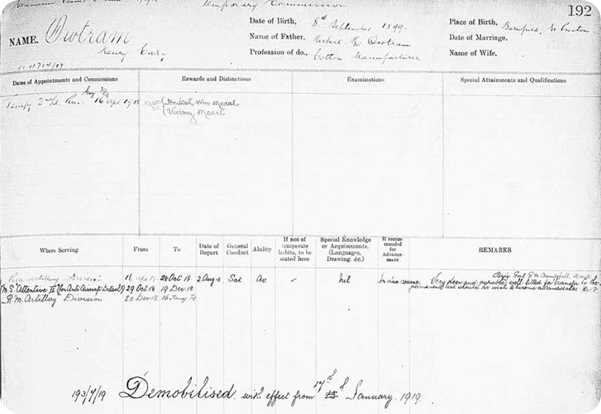 Temporary Commission
192
Date of Birth, 8th September 1899.
Place of Birth, Preston
NAME. Owtram
Name of Father, Herbert H Owtram
Date of Marriage.
Henry Cary
Profession of do., Cotton Manufacturer
Name of Wife.
Dates of Appointments and Commissions
Rewards and Distinctions
Examinations
Special Attainments and Qualifications
Tempy 2nd Lt. 16 Apl 1918
British War Medal
Victory Medal
Where Serving
From
To
Date of Report
General Conduct
Ability
If not of temperate habits, to be stated here
Special Knowledge or Acquirements. (Languages, Drawing, &c.)
If recommended for Advancement
REMARKS
Rm Artillery Division 16 Apl 28 Oct 18 2 Aug 18 Sat Ae nil In due course Very keen and
HMS Attentive II (for Anti Aircraft Defence) 29 Oct 18 19 Dec 18
R M Artillery Division 20 Dec 18 16 Jany 19
193/7/19 Demobilised with effect from 17th January 1919.